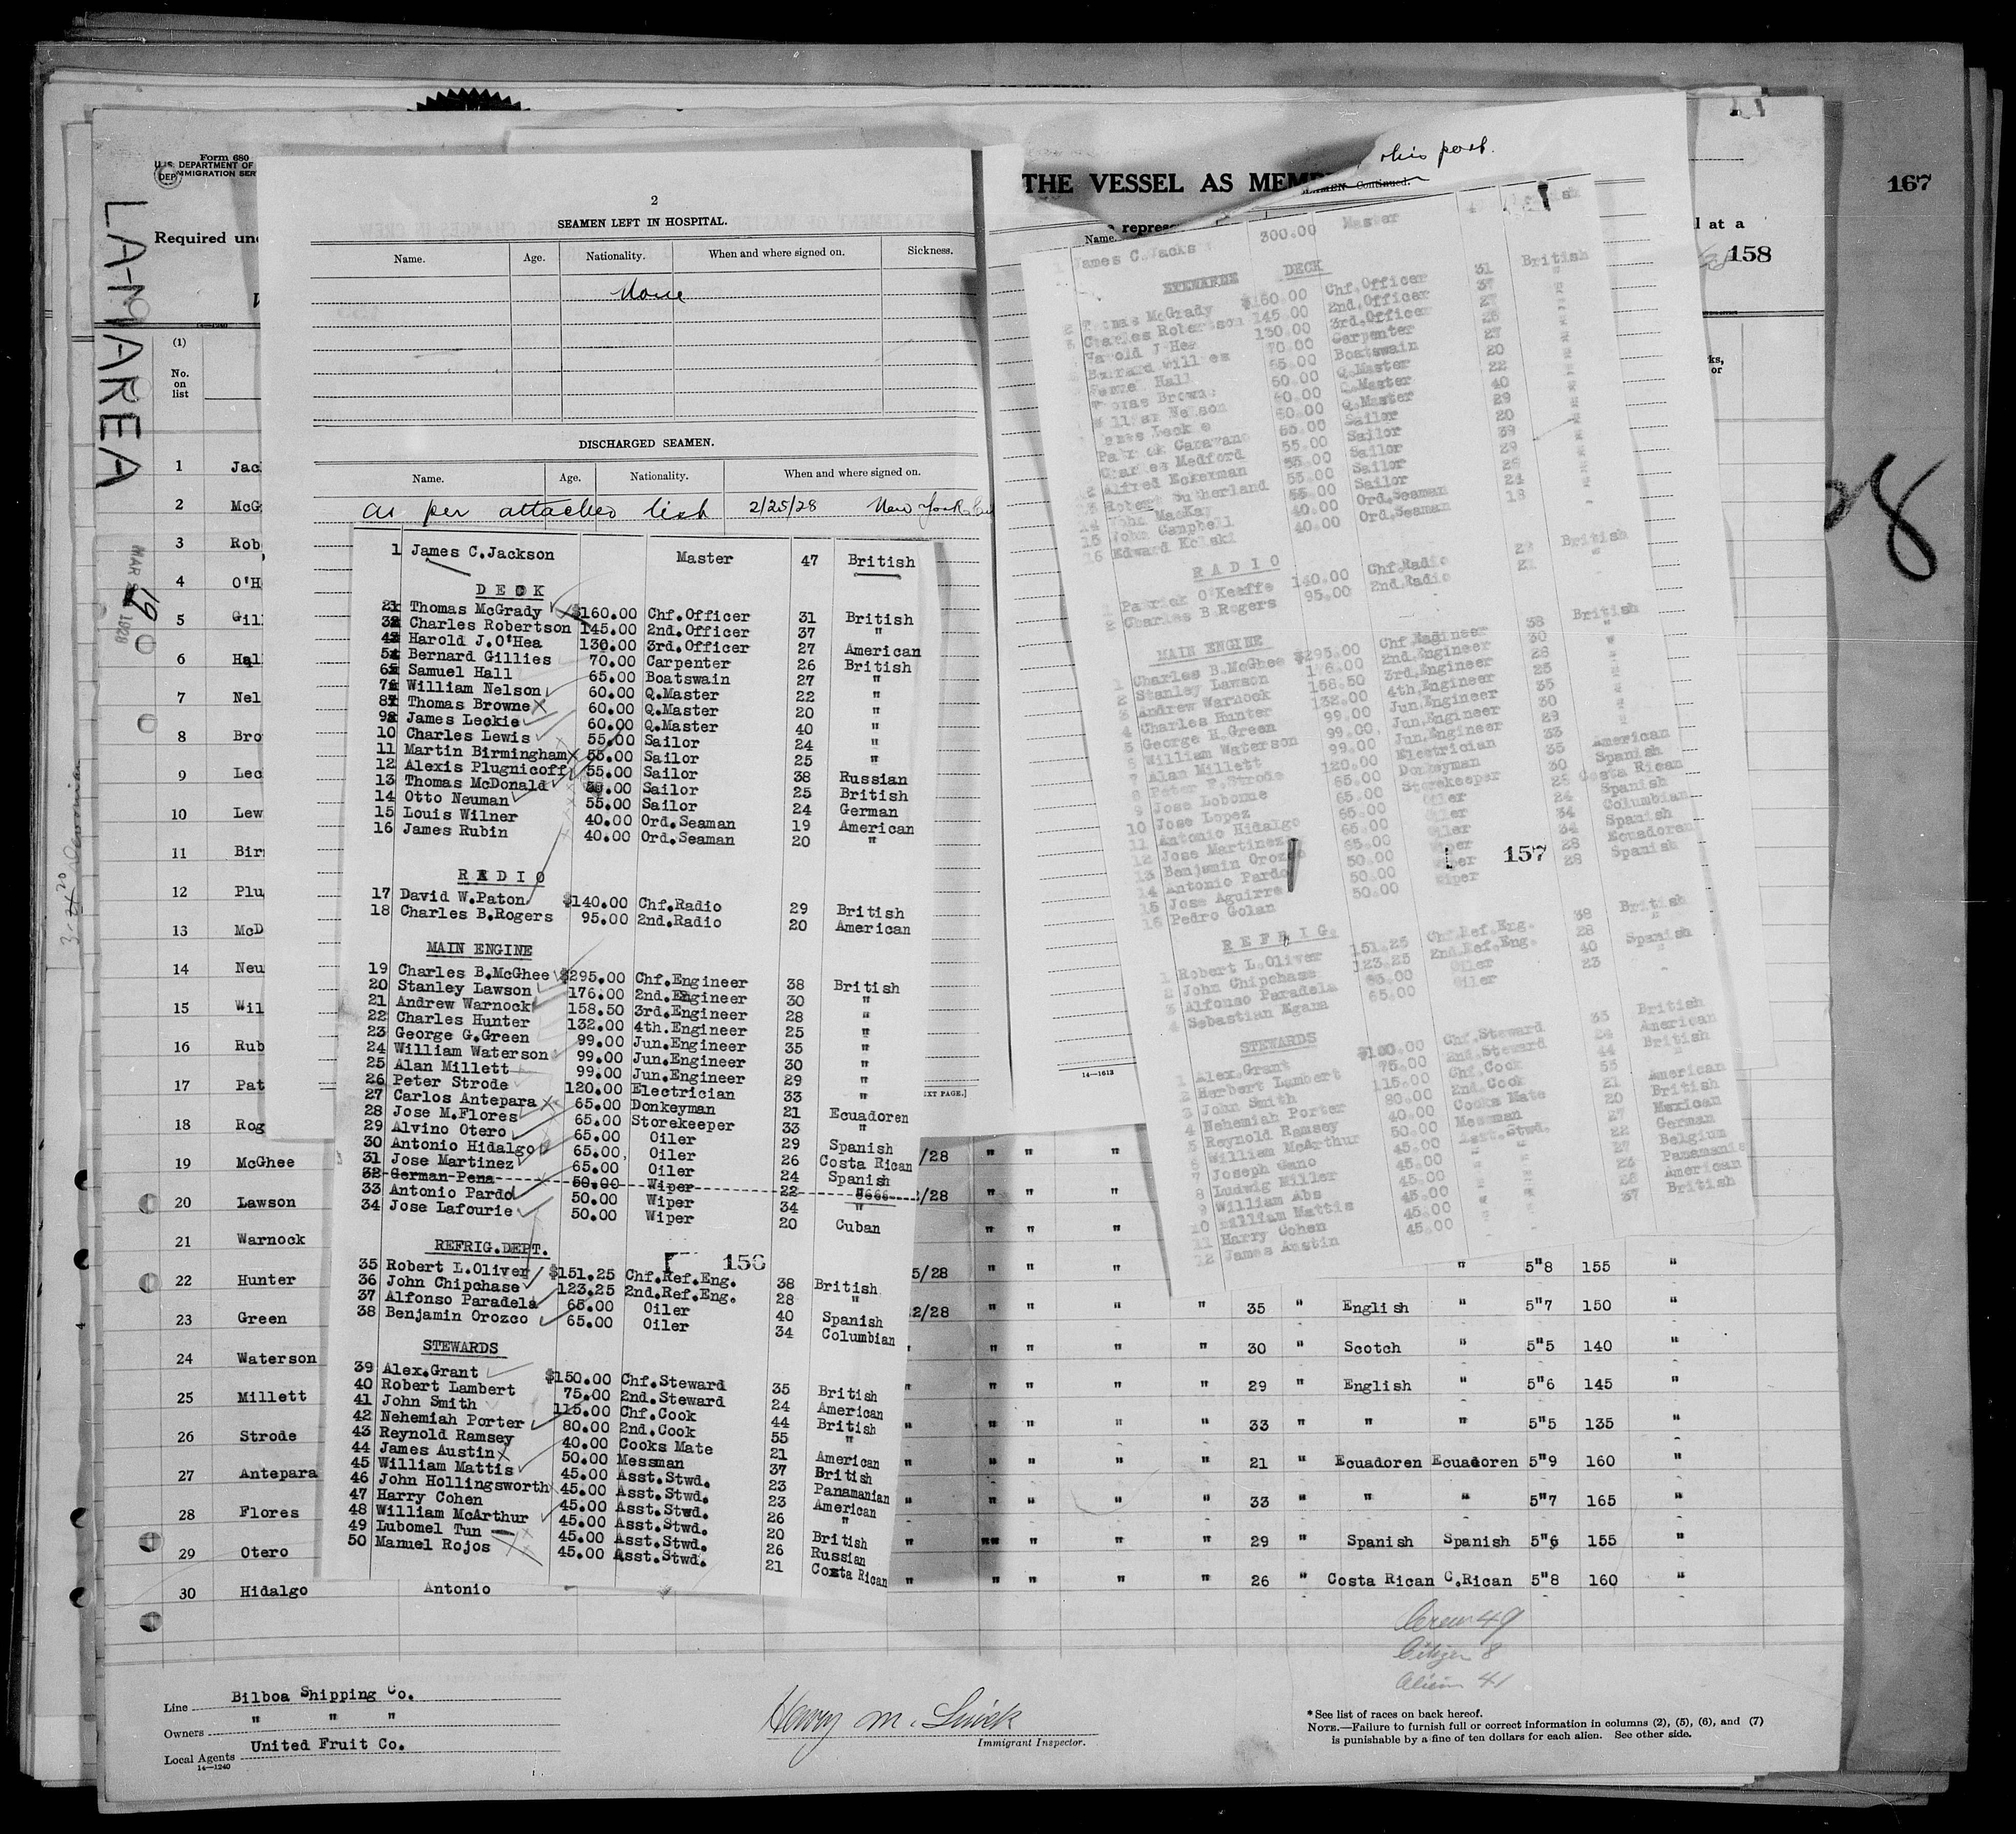 Form 680
U.S. DEPARTMENT OF
IMMIGRATION SER
LA-MAREA
Required und
MAR 1928
(1)
No.
on
list
1 Jac
2 McG
3 Rob
4 O'H
5 Gil
6 Hal
7 Nel
8 Bro
9 Lec
10 Lew
11 Bir
12 Plu
13 McD
14 Neu
15 Wil
16 Rub
17 Pat
18 Rog
19 McGhee
20 Lawson
21 Warnock
22 Hunter
23 Green
24 Waterson
25 Millett
26 Strode
27 Antepara
28 Flores
29 Otero
30 Hidalgo Antonio
2
SEAMEN LEFT IN HOSPITAL.
Name. Age. Nationality. When and where signed on. Sickness.
None
DISCHARGED SEAMEN.
Name. Age. Nationality. When and where signed on.
as per attached list 2/25/28 New York
1 James C.Jackson Master 47 British
DECK
2 Thomas McGrady $160.00 Chf.Officer 31 British
3 Charles Robertson 145.00 2nd.Officer 37 "
4 Harold J.O'Hea 130.00 3rd.Officer 27 American
5 Bernard Gillies 70.00 Carpenter 26 British
6 Samuel Hall 65.00 Boatswain 27 "
7 William Nelson 60.00 Q.Master 22 "
8 Thomas Browne 60.00 Q.Master 20 "
9 James Leckie 60.00 Q.Master 40 "
10 Charles Lewis 55.00 Sailor 24 "
11 Martin Birmingham 55.00 Sailor 25 "
12 Alexis Plugnicoff 55.00 Sailor 38 Russian
13 Thomas McDonald Sailor 25 British
14 Otto Neuman 55.00 Sailor 24 German
15 Louis Wilner 40.00 Ord.Seaman 19 American
16 James Rubin 40.00 Ord.Seaman 20 "
RADIO
17 David W.Paton $140.00 Chf.Radio 29 British
18 Charles B.Rogers 95.00 2nd.Radio 20 American
MAIN ENGINE
19 Charles B.McGhee $295.00 Chf.Engineer 38 British
20 Stanley Lawson 176.00 2nd.Engineer 30 "
21 Andrew Warnock 158.50 3rd.Engineer 28 "
22 Charles Hunter 132.00 4th.Engineer 25 "
23 George G.Green 99.00 Jun.Engineer 35 "
24 William Waterson 99.00 Jun.Engineer 30 "
25 Alan Millett 99.00 Jun.Engineer 29 "
26 Peter Strode 120.00 Electrician 33 "
27 Carlos Antepara 65.00 Donkeyman 21 Ecuadoren
28 Jose M.Flores 65.00 Storekeeper 33 "
29 Alvino Otero 65.00 Oiler 29 Spanish
30 Antonio Hidalgo 65.00 Oiler 26 Costa Rican
31 Jose Martinez 65.00 Oiler 24 Spanish
32 German Pena 50.00 Wiper 22
33 Antonio Pardo 50.00 Wiper 34 "
34 Jose Lafourie 50.00 Wiper 20 Cuban
REFRIG.DEPT.
156
35 Robert L.Oliver $151.25 Chf.Ref.Eng. 38 British
36 John Chipchase 123.25 2nd.Ref.Eng. 28 "
37 Alfonso Paradela 65.00 Oiler 40 Spanish
38 Benjamin Orozco 65.00 Oiler 34 Columbian
STEWARDS
39 Alex.Grant $150.00 Chf.Steward 35 British
40 Robert Lambert 75.00 2nd.Steward 24 American
41 John Smith 115.00 Chf.Cook 44 British
42 Nehemiah Porter 80.00 2nd.Cook 55 "
43 Reynold Ramsey 40.00 Cooks Mate 21 American
44 James Austin 50.00 Messman 37 British
45 William Mattis 45.00 Asst.Stwd. 23 Panamanian
46 John Hollingsworth 45.00 Asst.Stwd. 23 American
47 Harry Cohen 45.00 Asst.Stwd. 26 "
48 William McArthur 45.00 Asst.Stwd. 20 British
49 Lubomel Tun 45.00 Asst.Stwd. 26 Russian
50 Manuel Rojos 45.00 Asst.Stwd. 21 Costa Rican
this port.
THE VESSEL AS MEM
Continued.
repres
l at a
167
158
Name.
James C.Jacks 300.00 Master
STEWARDS DECK
Thomas McGrady $160.00 Chf.Officer 31 British
Charles Robertson 145.00 2nd.Officer 37 "
Harold J Hea 130.00 3rd.Officer 27 "
Bernard Gillies 70.00 Carpenter 26 "
Hall 65.00 Boatswain 27 "
Thomas Browne 60.00 Q.Master 20 "
William Nelson 60.00 Q.Master 22 "
James Leckie 60.00 Q.Master 40 "
Patrick Canavano 55.00 Sailor 29 "
Charles Medford 55.00 Sailor 20 "
12 Alfred Eckerman 55.00 Sailor 39 "
13 Robert Sutherland 55.00 Sailor 29 "
14 John MacKay 55.00 Sailor 26 "
15 John Campbell 40.00 Ord.Seaman 24 "
16 Edward Kolski 40.00 Ord.Seaman 18
RADIO
1 Patrick O'Keeffe 140.00 Chf.Radio British
2 Charles B.Rogers 95.00 2nd.Radio
MAIN ENGINE
1 Charles B.McGhee $295.00 Chf.Engineer 38 British
2 Stanley Lawson 176.00 2nd.Engineer 30 "
3 Andrew Warnock 158.50 3rd.Engineer 28 "
4 Charles Hunter 132.00 4th.Engineer 25 "
5 George H.Green 99.00 Jun.Engineer 35 "
6 William Waterson 99.00 Jun.Engineer 30 "
7 Alan Millett 99.00 Jun.Engineer 29 "
8 Peter F.Strode 120.00 Electrician 33
9 Jose Loborne 65.00 Donkeyman 35 American
10 Jose Lopez 65.00 Storekeeper 30 Spanish
11 Antonio Hidalgo 65.00 Oiler 26 Costa Rican
12 Jose Martinez 65.00 Oiler 24 Spanish
13 Benjamin Orozco 65.00 Oiler 34 Columbian
14 Antonio Pardo 50.00 Wiper 34 Spanish
15 Jose Aguirre 50.00 Wiper 28 Ecuadoren
16 Pedro Golan 50.00 Wiper 28 Spanish
157
REFRIG.
1 Robert L.Oliver 151.25 Chf.Ref.Eng. 38 British
2 John Chipchase 123.25 2nd.Ref.Eng. 28 "
3 Alfonso Paradela 65.00 Oiler 40 Spanish
4 Sebastian Egana 65.00 Oiler 23
STEWARDS
1 Alex.Grant Chf.Steward 35 British
2 Herbert Lambert 75.00 2nd.Steward 24 American
3 John Smith 115.00 Chf.Cook 44 British
4 Nehemiah Porter 80.00 2nd.Cook 55 "
5 Reynold Ramsey 40.00 Cooks Mate 21 American
6 William McArthur 50.00 Messman 20 British
7 Joseph Cano 45.00 Asst.Stwd. 27 Mexican
8 Ludwig Miller 45.00 " " 22 German
9 William Abs 45.00 " " 27 Belgium
10 William Mattis 45.00 " " 23 Panamanian
11 Harry Cohen 45.00 " " 26 American
12 James Austin 45.00 " " 37 British
14-1613
EXT PAGE.]
5"8 155 "
35 " English " 5"7 150 "
30 " Scotch " 5"5 140 "
29 " English " 5"6 145 "
33 " " " 5"5 135 "
21 " Ecuadoren Ecuadoren 5"9 160 "
33 " " " 5"7 165 "
29 " Spanish Spanish 5"6 155 "
26 " Costa Rican C.Rican 5"8 160 "
Crew 49
Citizen 8
Alien 41
Line Bilboa Shipping Co.
Owners " " "
Local Agents United Fruit Co.
14-1240
Henry M. Swick
Immigrant Inspector.
* See list of races on back hereof.
NOTE.—Failure to furnish full or correct information in columns (2), (5), (6), and (7)
is punishable by a fine of ten dollars for each alien. See other side.